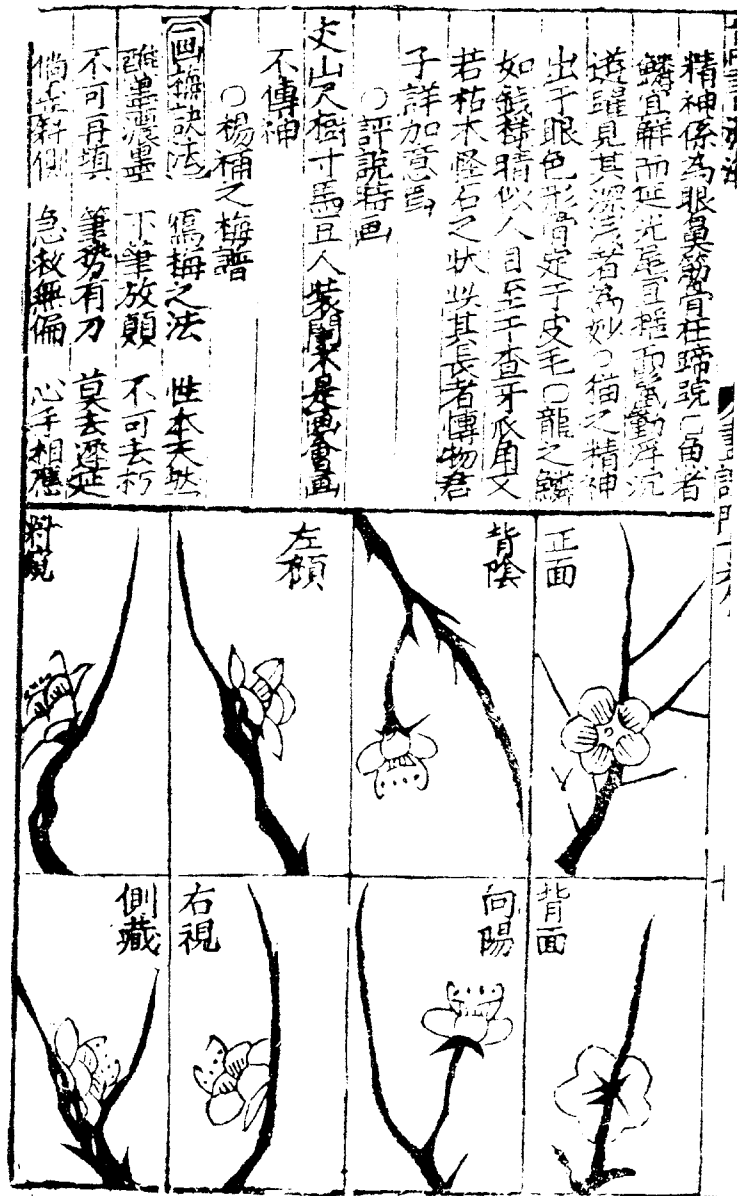 精神係為眼鼻筋骨在蹄踠○角者
鱗宜鮮而延光尾宜輕而鬣動浮沉
遊躍見其深淺者為妙○猫之精神
出于眼色形骨定于皮毛○龍之鱗
如錢樣睛似人目至于查牙爪角又
若枯木怪石之狀此其長者博物君
子詳加意焉
○評說時画
丈山尺樹寸馬豆人裝関不是画會画
不傳神
○楊補之梅譜
画梅訣法 寫梅之法 性本天然
醮墨濃墨 下筆放顛 不可去朽
不可再填 筆勢有力 莫去遲延
倘若斜側 急救無偏 心手相應
正面
背陰
左顧
背面
向陽
右視
側藏